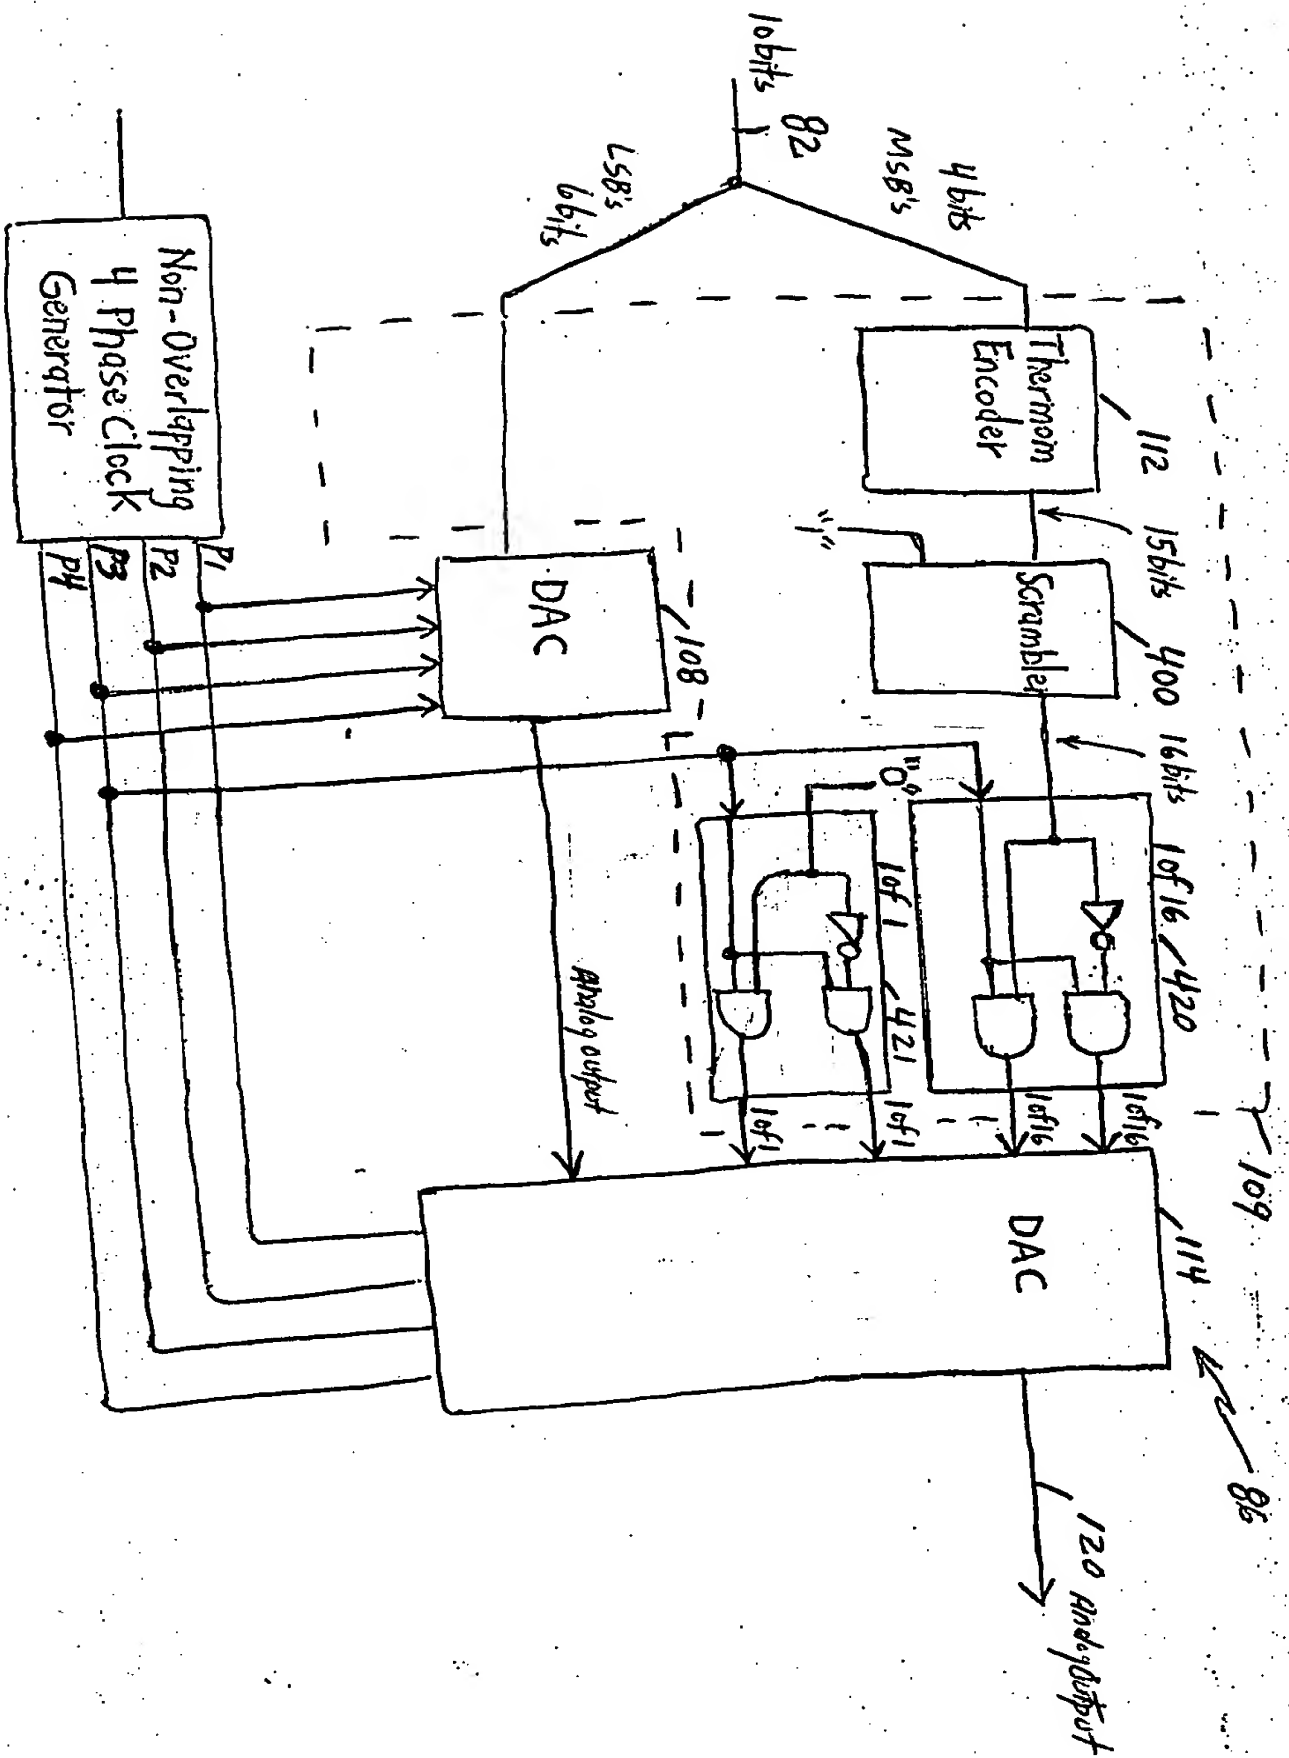 10bits
82
4 bits
MSB's
LSB's
6bits
Thermom
Encoder
112
15bits
Scrambler
400
16bits
1of16
420
"0"
1of1
421
1of16
1of16
1of1
1of1
109
DAC
108
Analog output
DAC
114
86
120 Analog Output
Non-Overlapping
4 Phase Clock
Generator
P1
P2
P3
P4